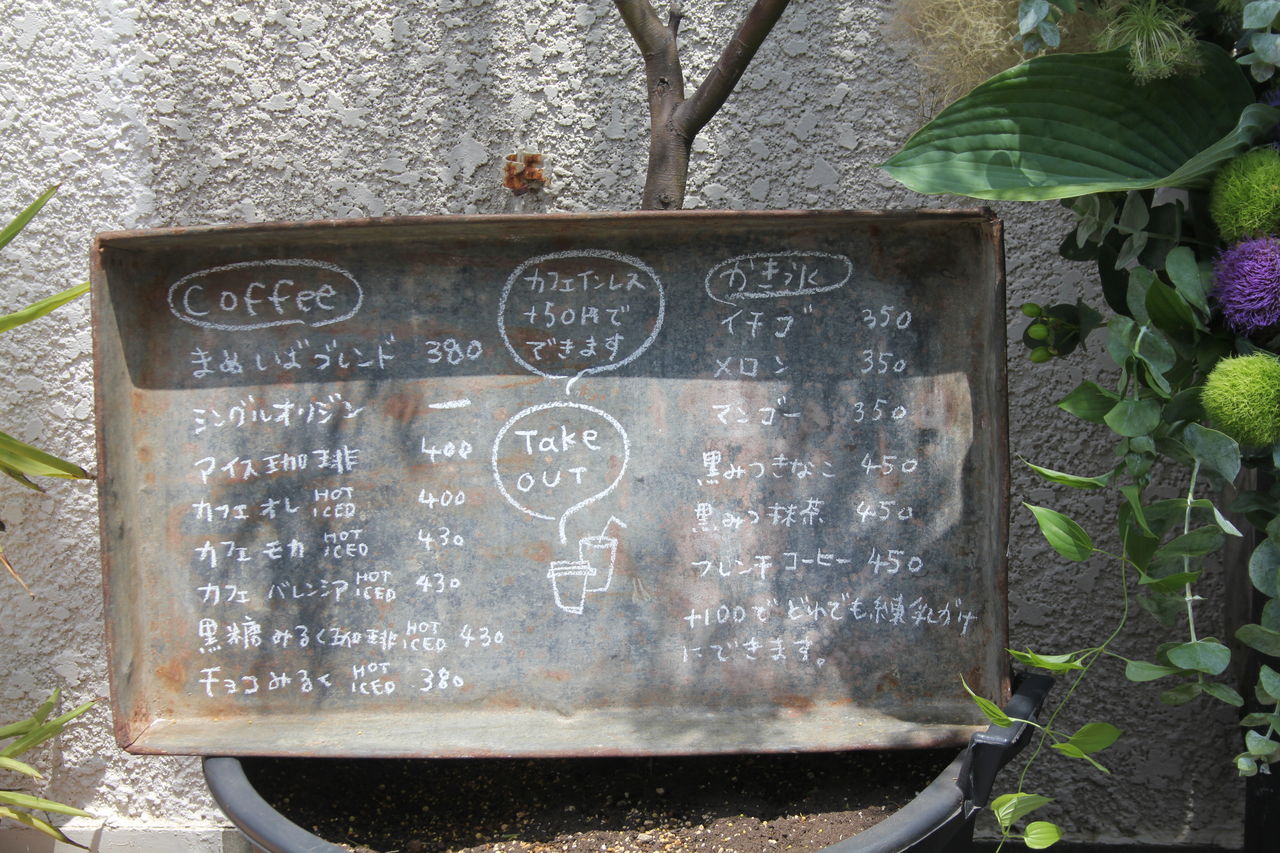 Coffee
まめいばブレンド 380
ミングルオリジン ー
アイス珈琲 400
カフェオレ HOT ICED 400
カフェモカ HOT ICED 430
カフェバレンシア HOT ICED 430
黒糖みるく珈琲 HOT ICED 430
チョコみるく HOT ICED 380
カフェインレス
+50円で
できます
Take
OUT
かき氷
イチゴ 350
メロン 350
マンゴー 350
黒みつきなこ 450
黒みつ抹茶 450
フレンチコーヒー 450
+100でどれでも練乳がけ
にできます。